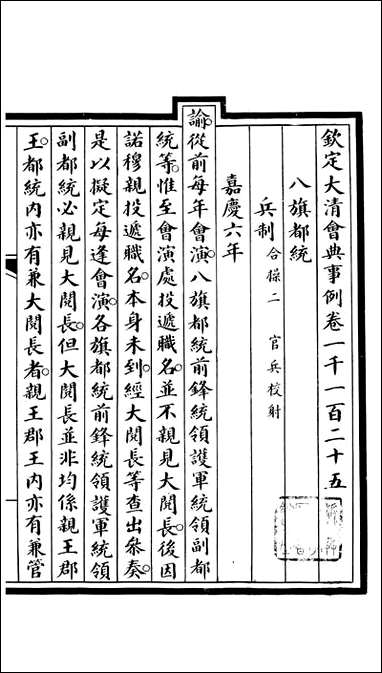 欽定大清會典事例卷一千一百二十五
八旗都統
兵制 合操二 官兵校射
嘉慶六年
諭從前每年會演八旗都統前鋒統領護軍統領副都
統等惟至會演處投遞職名並不親見大閱長後因
諾穆親投遞職名本身未到經大閱長等查出叅奏
是以擬定每逢會演各旗都統前鋒統領護軍統領
副都統必親見大閱長但大閱長並非均係親王郡
王都統內亦有兼大閱長者親王郡王內亦有兼管